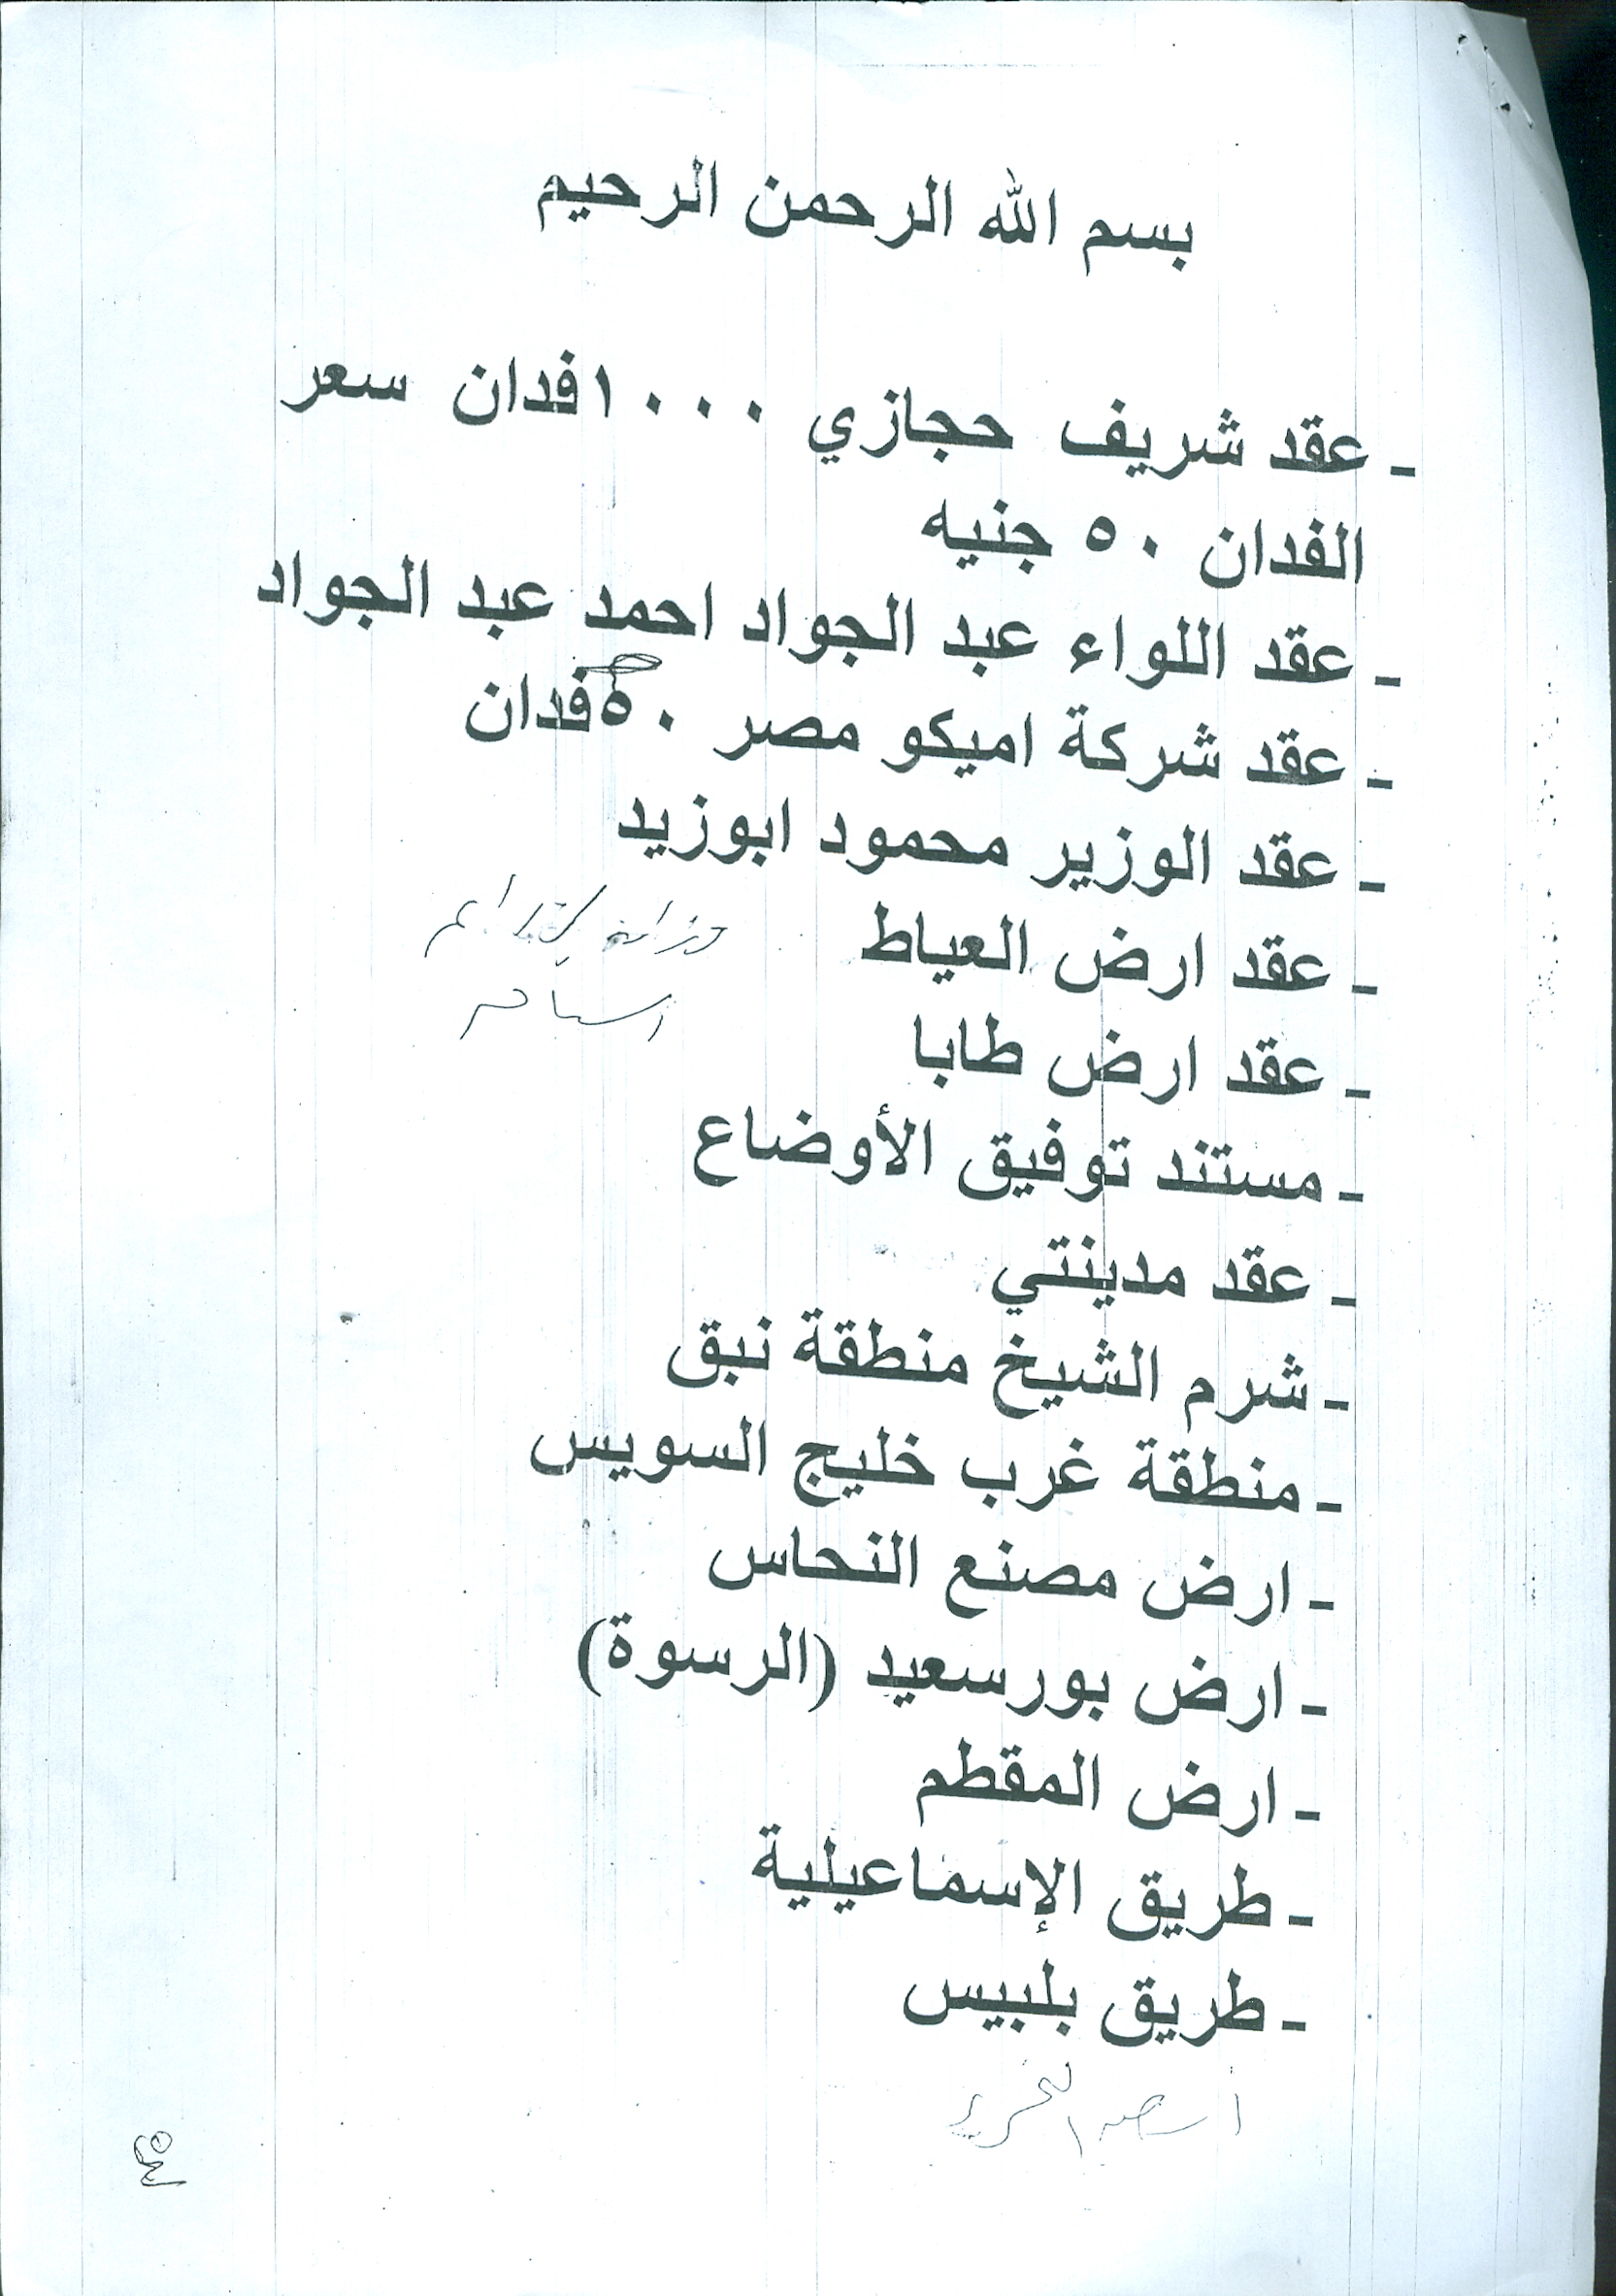 بسم الله الرحمن الرحيم
- عقد شريف حجازي ١٠٠٠فدان سعر
الفدان ٥٠ جنيه
- عقد اللواء عبد الجواد احمد عبد الجواد
- عقد شركة اميكو مصر ٥٠فدان
- عقد الوزير محمود ابوزيد
- عقد ارض العياط
- عقد ارض طابا
- مستند توفيق الأوضاع
- عقد مدينتي
- شرم الشيخ منطقة نبق
- منطقة غرب خليج السويس
- ارض مصنع النحاس
- ارض بورسعيد (الرسوة)
- ارض المقطم
- طريق الإسماعيلية
- طريق بلبيس